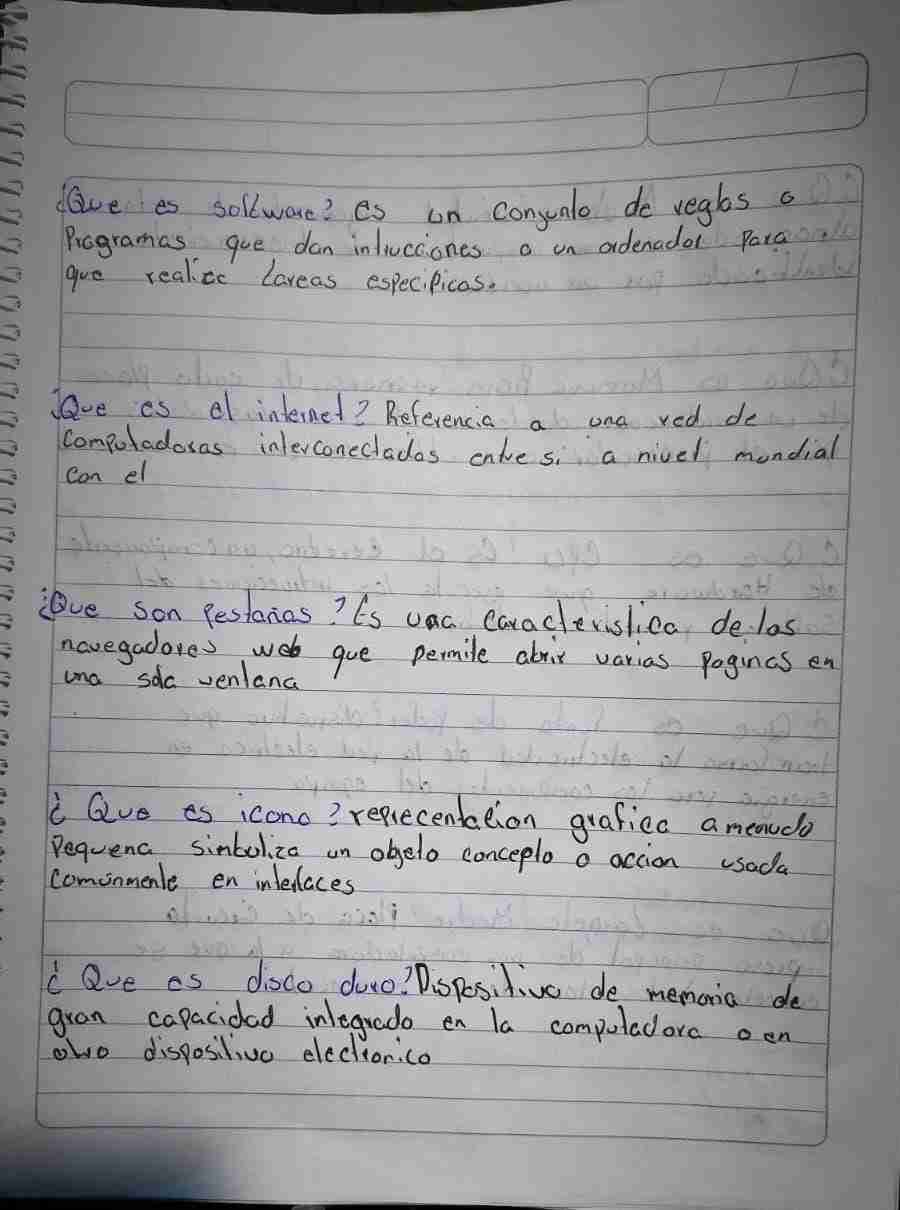 ¿Que es software? es un conjunto de reglas o
Programas que dan intrucciones a un ordenador para
que realice tareas especificas.
¿Que es el internet? Referencia a una red de
Computadoras interconectados entre si a nivel mundial
con el
¿Que son pestañas? Es una caracteristica de los
navegadores web que permite abrir varias paginas en
una sola ventana
¿Que es icono? reprecentación grafica a menudo
Pequena simboliza un objeto concepto o accion usada
comúnmente en interfaces
¿Que es disco duro? Dispositivo de memoria de
gran capacidad integrado en la computadora o en
otro dispositivo electronico